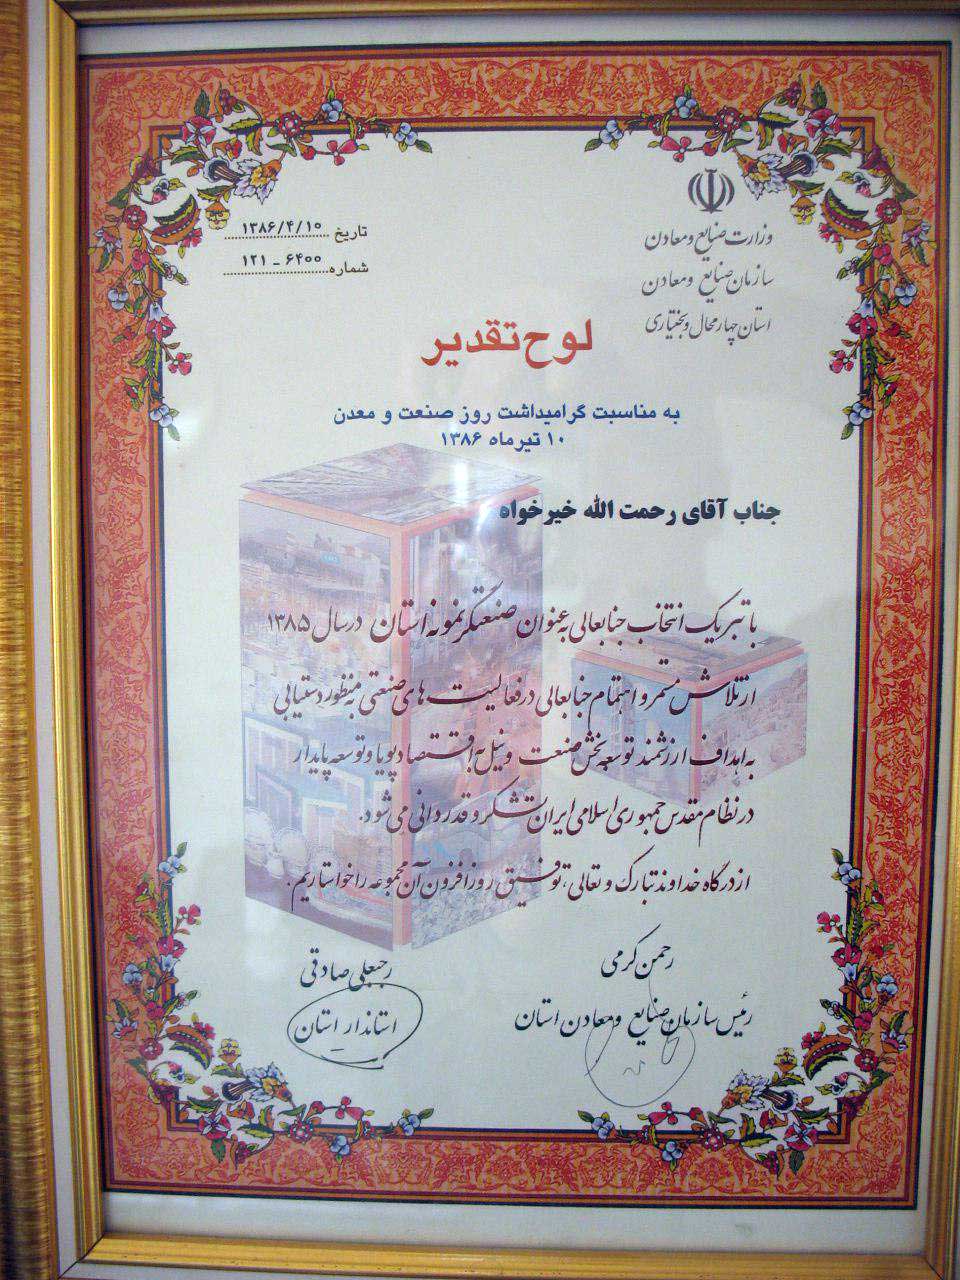 وزارت صنایع و معادن
سازمان صنایع و معادن
استان چهارمحال و بختیاری
تاریخ ۱۳۸۶/۴/۱۰
شماره ۶۴۰۰ - ۱۲۱
لوح تقدیر
به مناسبت گرامیداشت روز صنعت و معدن
۱۰ تیرماه ۱۳۸۶
جناب آقای رحمت الله خیرخواه
با تبریک انتخاب جنابعالی به عنوان صنعتگر نمونه استان در سال ۱۳۸۵
از تلاش مستمر و اهتمام جنابعالی در فعالیت های صنعتی به منظور دستیابی
به اهداف ارزشمند توسعه بخش صنعت و نیل به اقتصاد پویا و توسعه پایدار
در نظام مقدس جمهوری اسلامی ایران تشکر و قدردانی می شود.
از درگاه خداوند تبارک و تعالی، توفیق روزافزون آن مجموعه را خواستاریم.
رحمن کرمی
رئیس سازمان صنایع و معادن استان
رجبعلی صادقی
استاندار استان